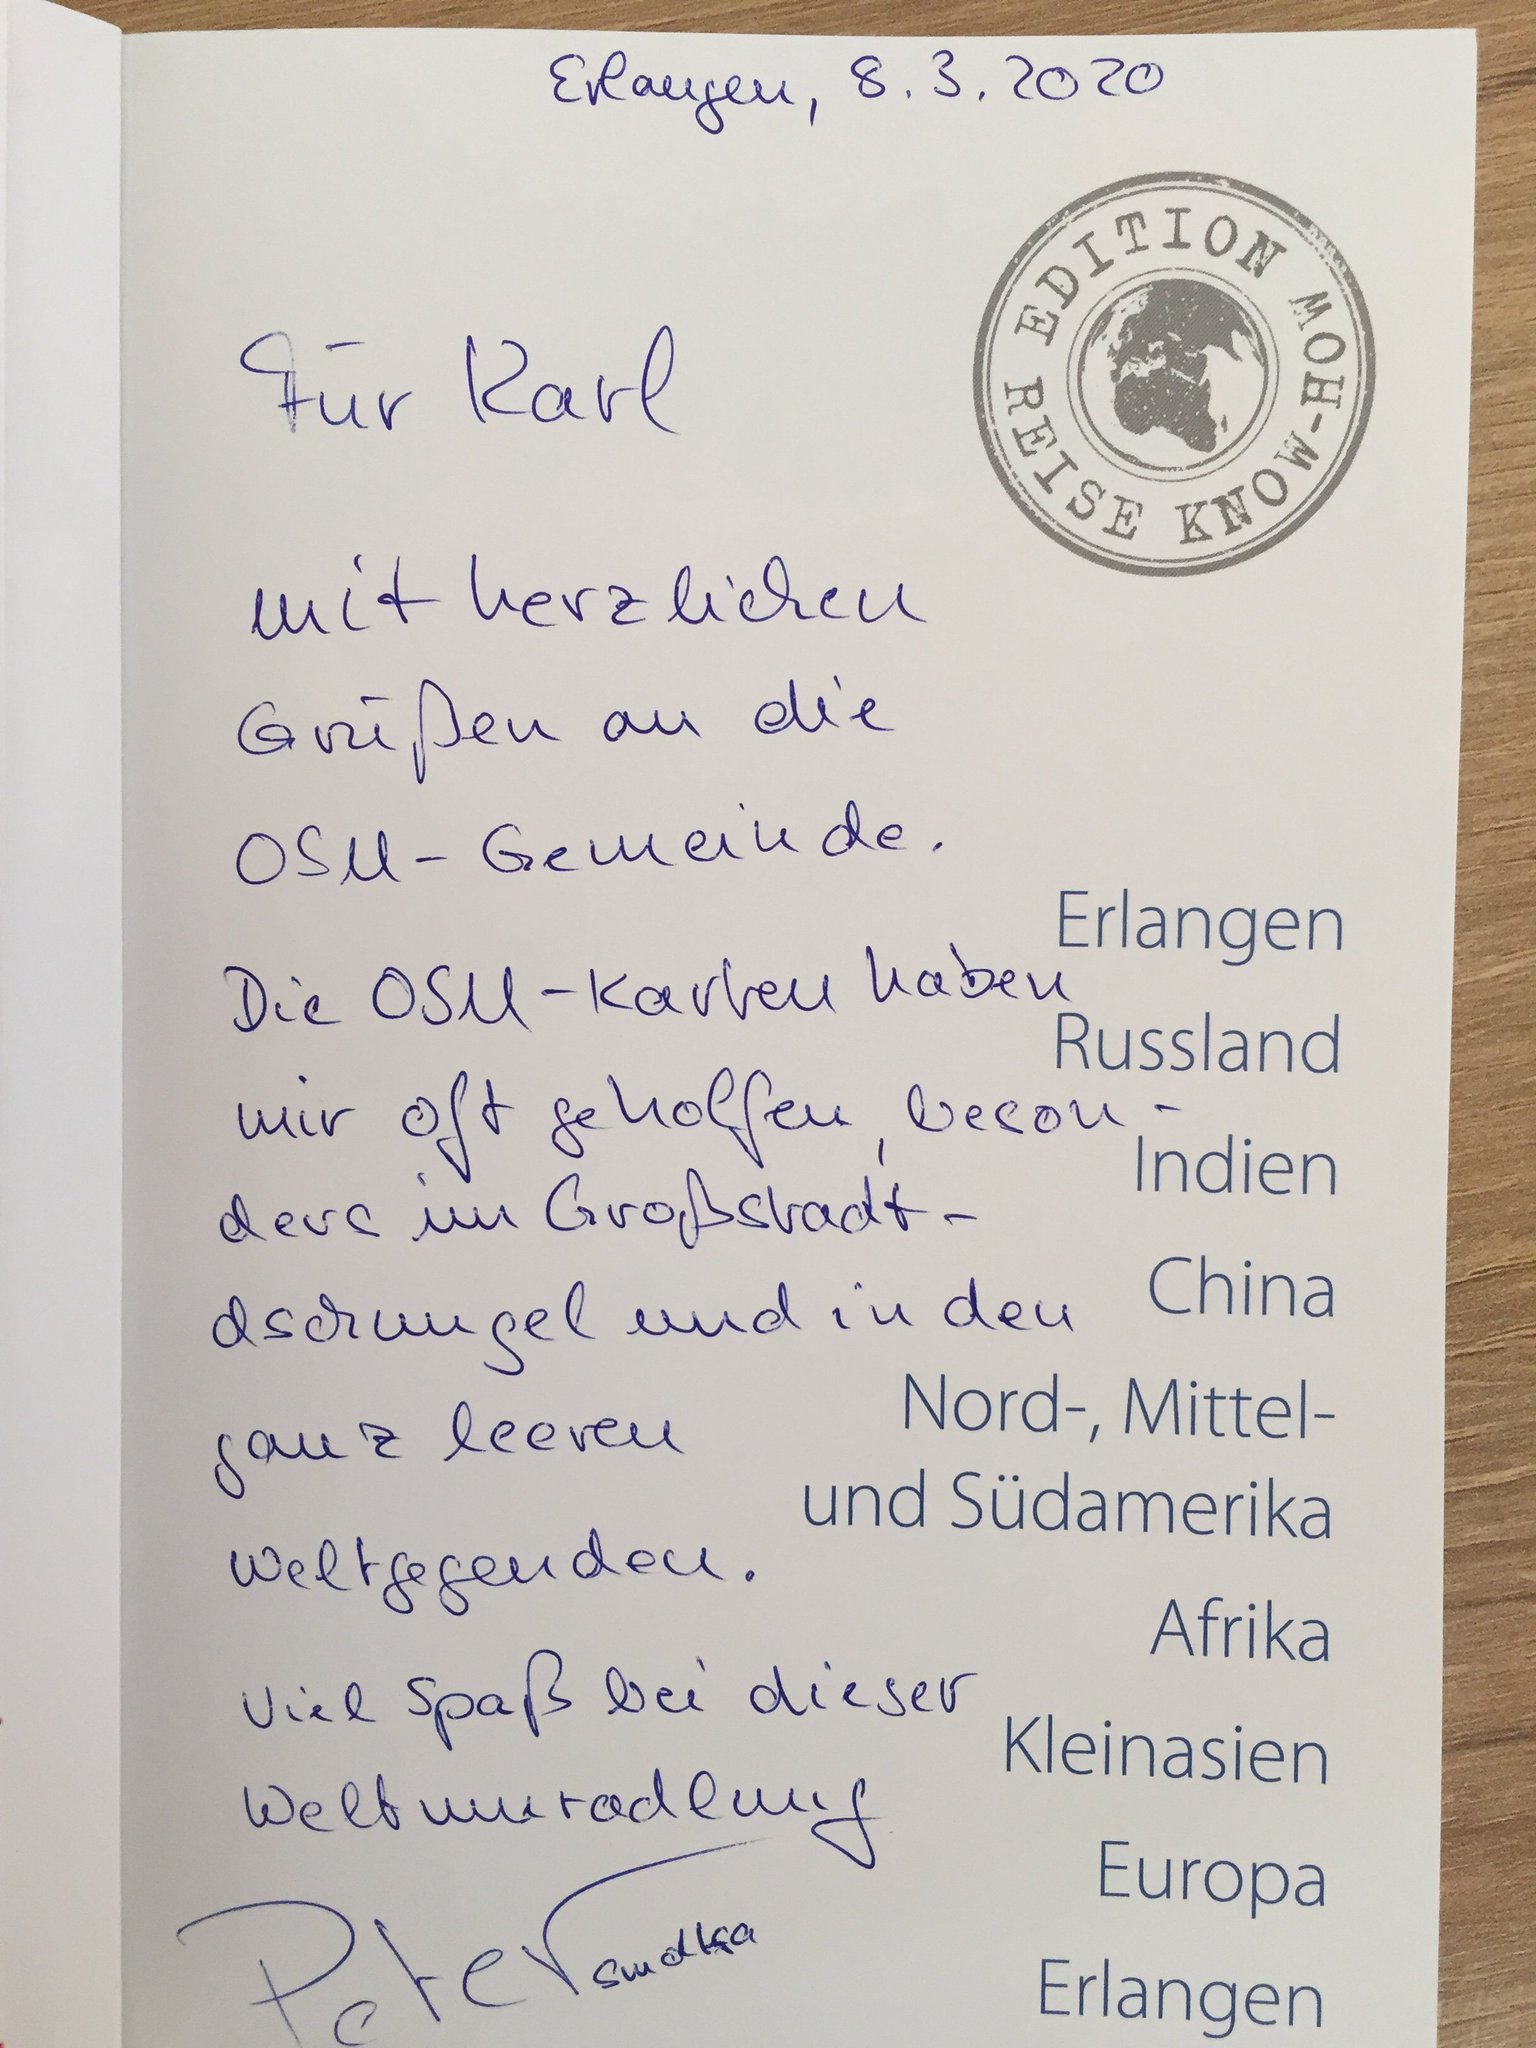 Erlangen, 8.3.2020
EDITION REISE KNOW-HOW
Für Karl
mit herzlichen
Grüßen an die
OSM-Gemeinde.
Die OSM-Karten haben
mir oft geholfen, beson-
ders im Großstadt-
dschungel und in den
ganz leeren
Weltgegenden.
Viel Spaß bei dieser
Weltumradlung
Peter Smolka
Erlangen
Russland
Indien
China
Nord-, Mittel-
und Südamerika
Afrika
Kleinasien
Europa
Erlangen